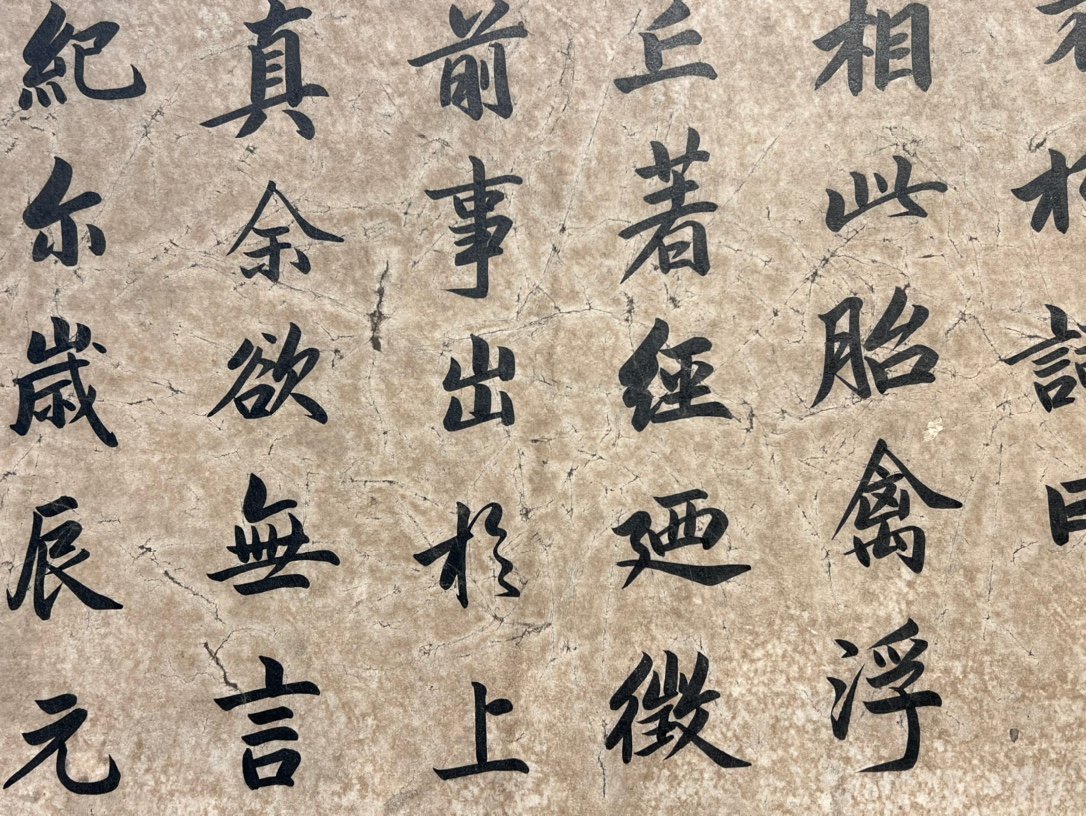 相此胎禽浮
丘著經廼徵
前事出於上
真余欲無言
紀尔歲辰元